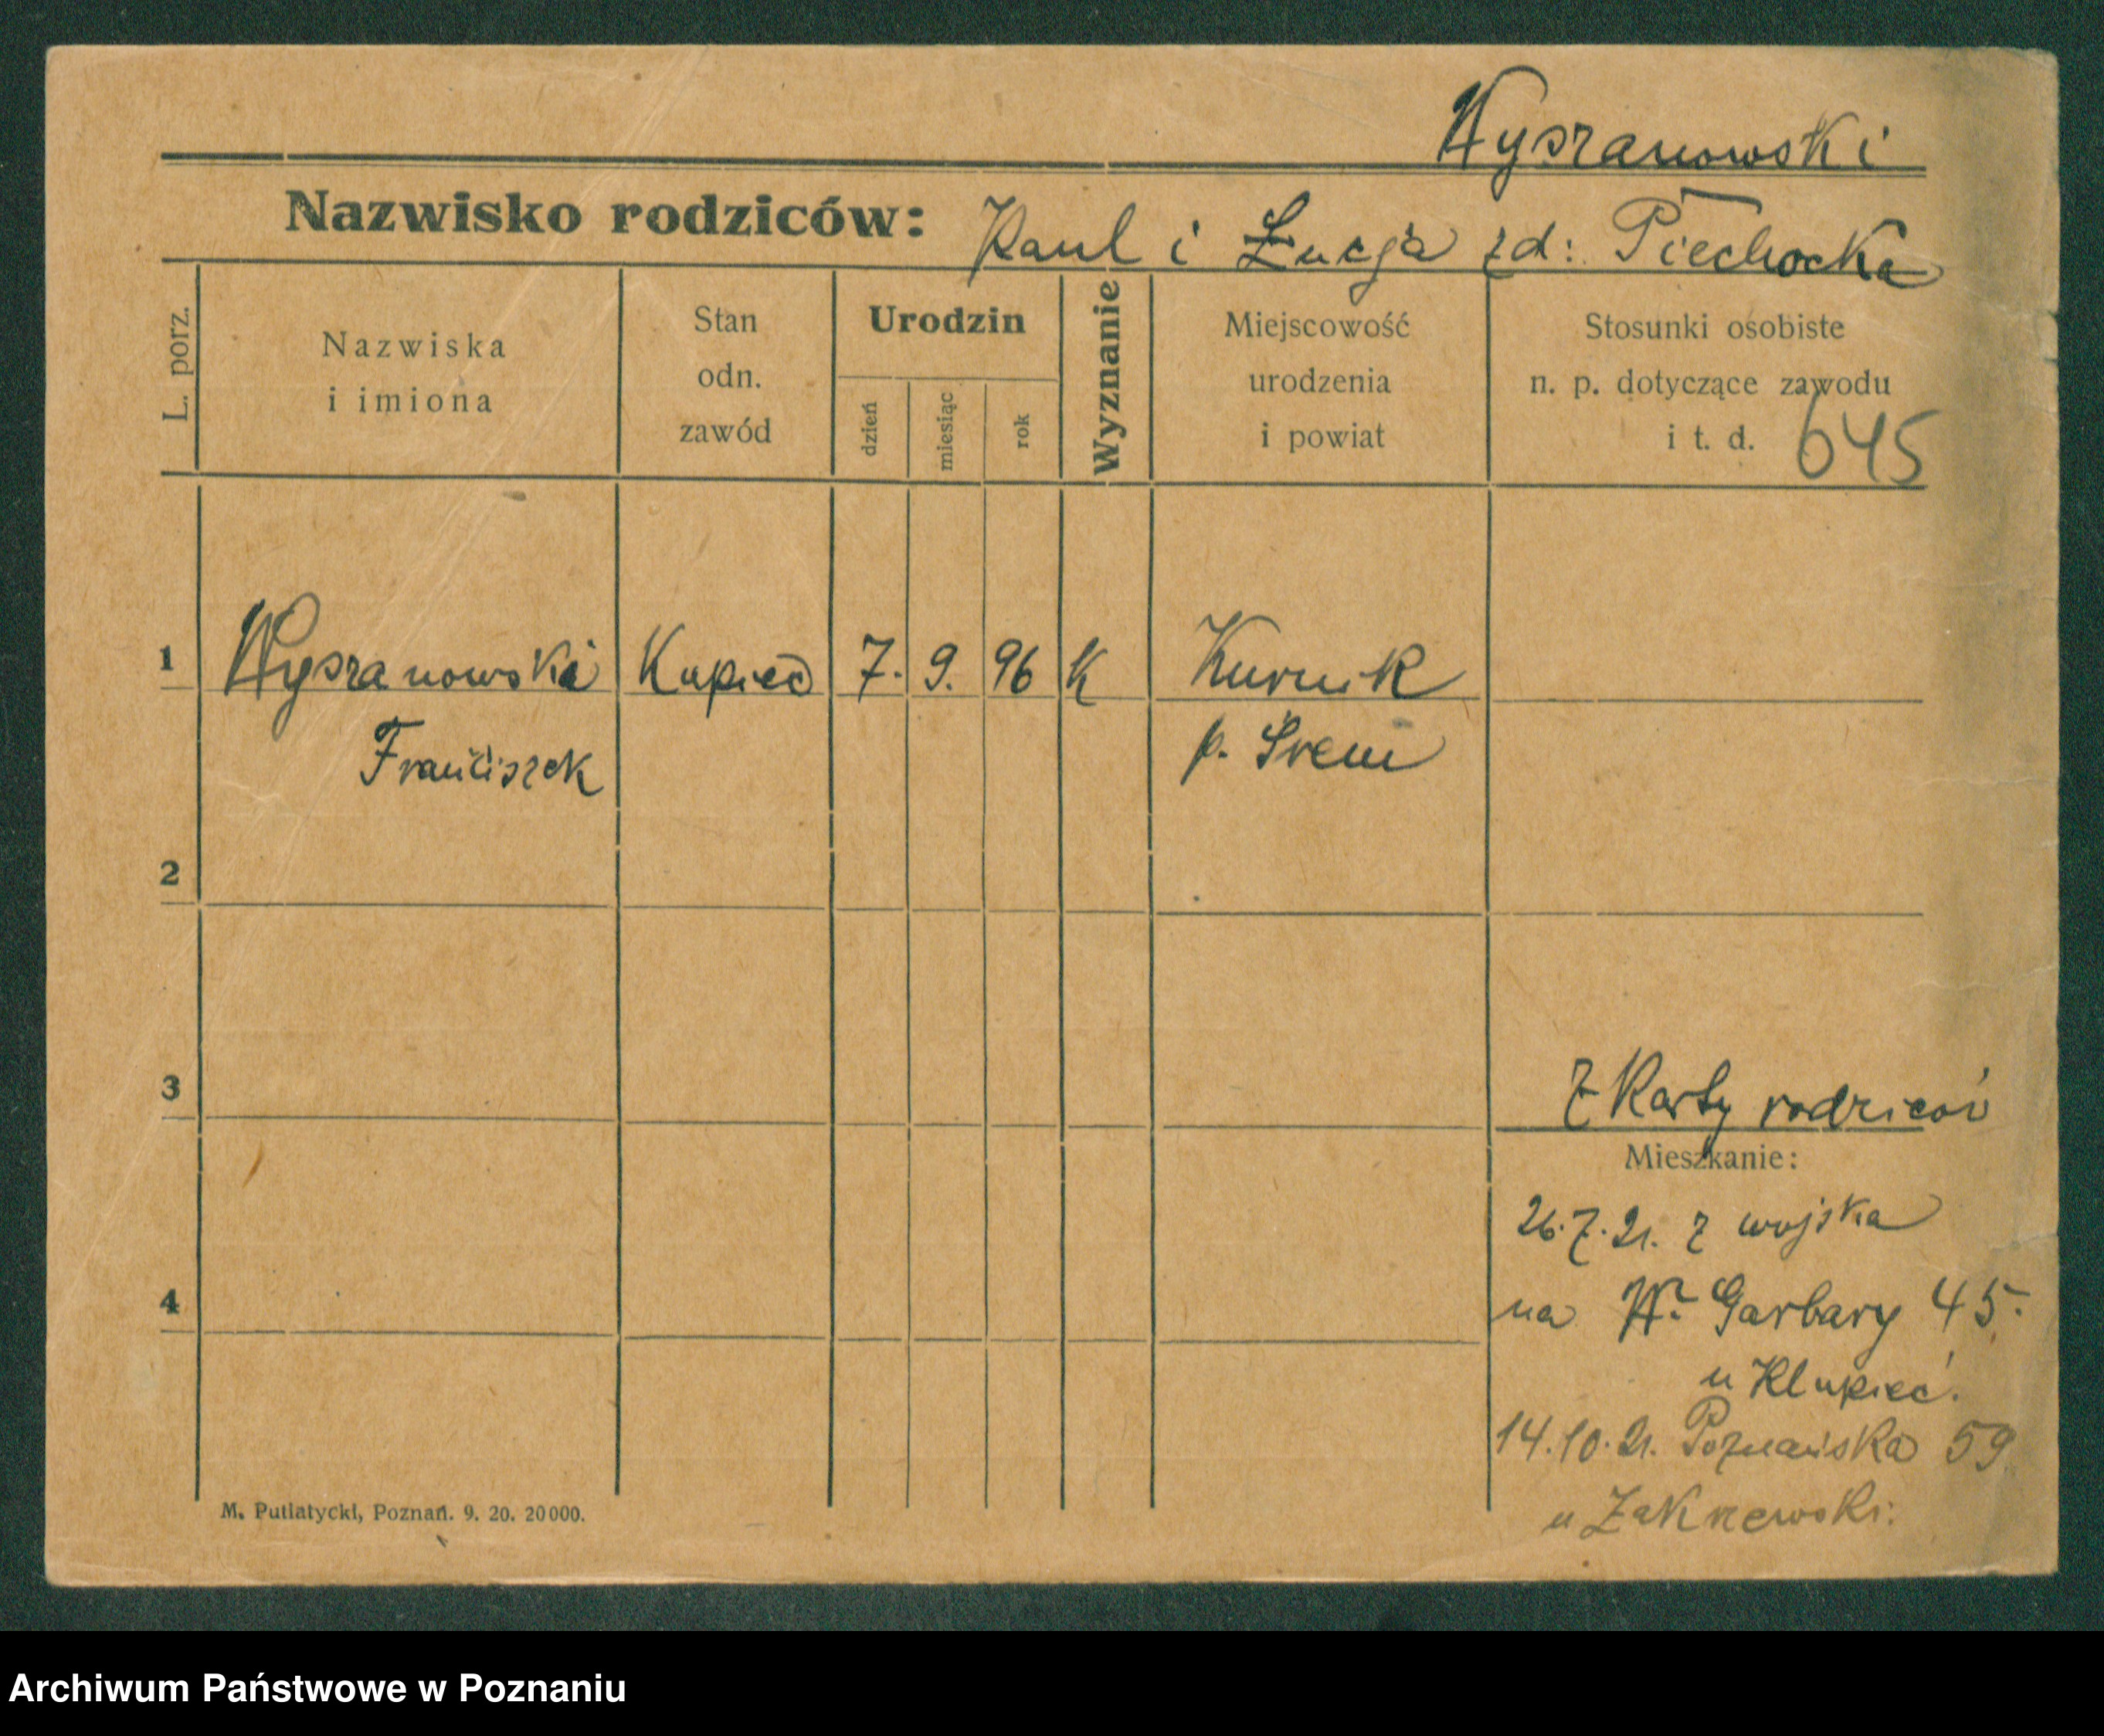 Wyszanowski
Nazwisko rodziców: Paul i Łucja zd: Piechocka
L. porz.
Nazwiska i imiona
Stan odn. zawód
Urodzin
dzień
miesiąc
rok
Wyznanie
Miejscowość urodzenia i powiat
Stosunki osobiste n. p. dotyczące zawodu i t. d.
645
1 Wyszanowski Kupiec 7. 9. 96 K Kurnik
Franciszek p. Śrem
2
3
Z Karty rodziców
Mieszkanie:
26.7.21. z wojska
4
na W. Garbary 45.
u Klupieć.
14.10.21. Poznańska 59
u Zakrzewski:
M. Putiatycki, Poznań. 9. 20. 20000.
Archiwum Państwowe w Poznaniu